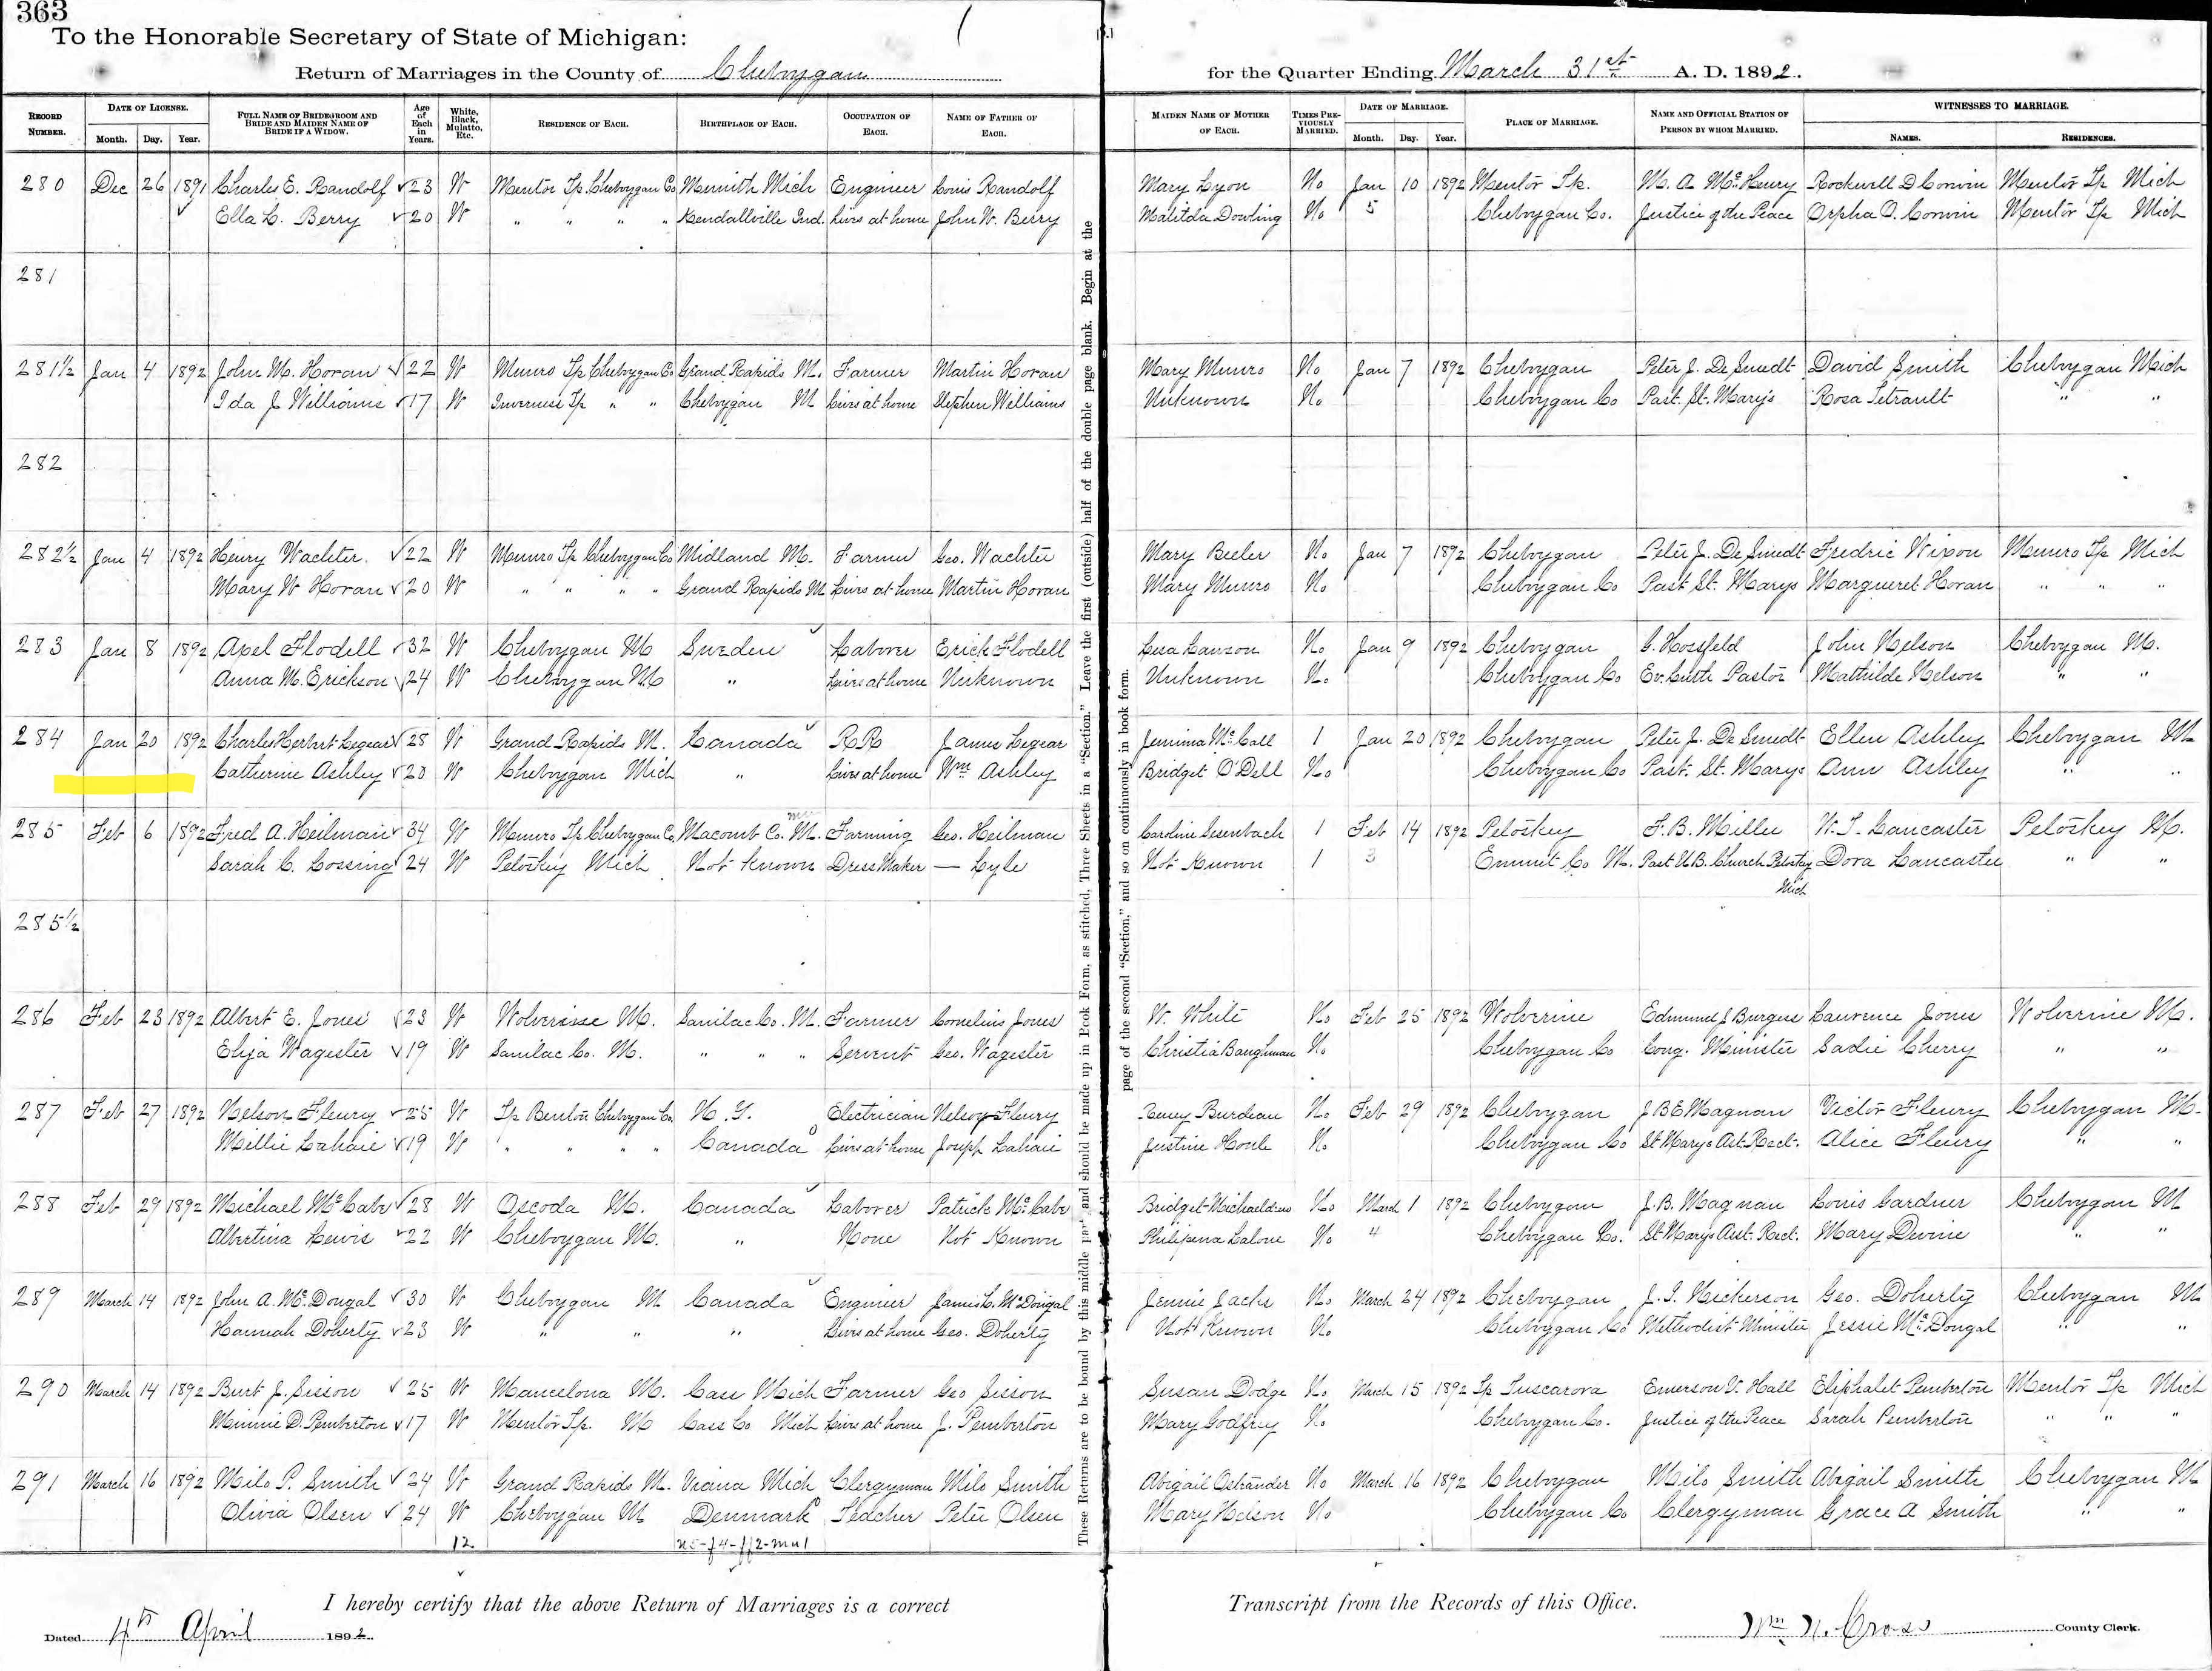 363
To the Honorable Secretary of State of Michigan:
Return of Marriages in the County of Cheboygan for the Quarter Ending March 31st A. D. 1892.
RECORD NUMBER. DATE OF LICENSE. Month. Day. Year. FULL NAME OF BRIDEGROOM AND BRIDE AND MAIDEN NAME OF BRIDE IF A WIDOW. Age of Each in Years. White, Black, Mulatto, Etc. RESIDENCE OF EACH. BIRTHPLACE OF EACH. OCCUPATION OF EACH. NAME OF FATHER OF EACH. MAIDEN NAME OF MOTHER OF EACH. TIMES PREVIOUSLY MARRIED. DATE OF MARRIAGE. Month. Day. Year. PLACE OF MARRIAGE. NAME AND OFFICIAL STATION OF PERSON BY WHOM MARRIED. WITNESSES TO MARRIAGE. NAMES. RESIDENCES.
280 Dec 26 1891 Charles E. Randolf 23 W Mentor Tp Cheboygan Co Engineer Louis Randolf Mary Lyon No Jan 10 1892 Mentor Tp. M. A. McHenry Rockwell D Corwin Mentor Tp Mich
Ella L. Berry 20 W " " " " Kendallville Ind. Lives at home John W. Berry Malitda Dowling No 5 Cheboygan Co. Justice of the Peace Orpha O. Corwin Mentor Tp Mich
281
281½ Jan 4 1892 John M. Horan 22 W Munro Tp Cheboygan Co Grand Rapids M. Farmer Martin Horan Mary Munro No Jan 7 1892 Cheboygan Peter J. De Smedt David Smith Cheboygan Mich
Ida J Williams 17 W Inverness Tp " " Cheboygan M Lives at home Stephen Williams Unknown No Cheboygan Co Past. St. Mary's Rosa Tetrault " "
282
282½ Jan 4 1892 Henry Wachter. 22 W Munro Tp Cheboygan Co Midland M. Farmer Geo. Wachter Mary Beeler No Jan 7 1892 Cheboygan Peter J. De Smedt Fredric Wixon Munro Tp Mich
Mary W Horan 20 W " " " " Grand Rapids M Lives at home Martin Horan Mary Munro No Cheboygan Co Past St. Marys Margueret Horan " " "
283 Jan 8 1892 Axel Flodell 32 W Cheboygan M Sweden Laborer Erick Flodell Lawson No Jan 9 1892 Cheboygan G. Hossfeld John Nelson Cheboygan M.
Anna M. Erickson 24 W Cheboygan M " Lives at home Unknown Unknown No. Cheboygan Co Ev. Luth Pastor Mathilde Nelson " "
284 Jan 20 1892 Charles Herbert Legear 28 W Grand Rapids M. Canada RR James Legear Jemima McCall 1 Jan 20 1892 Cheboygan Peter J. De Smedt Ellen Ashley Cheboygan M
Catherine Ashley 20 W Cheboygan Mich " Lives at home Wm Ashley Bridget O'Dell No Cheboygan Co Past. St. Marys Ann Ashley " "
285 Feb 6 1892 Fred A. Heilman 34 W Munro Tp Cheboygan Co. Macomb Co. M. Farming Geo. Heilman Caroline 1 Feb 14 1892 Petoskey F. B. Miller W. T. Lancaster Petoskey M.
Sarah C. Lossing 24 W Petoskey Mich Not Known Dress Maker — Lyle Not Known 1 3 Emmet Co M. Past U.B. Church Petoskey Mich Dora Lancaster " "
285½
286 Feb 23 1892 Albert E. Jones 23 W Wolverine M. Sanilac Co. M. Farmer Cornelius Jones W. White No Feb 25 1892 Wolverine Edmund J Burgess Laurence Jones Wolverine M.
Eliza Wagester 19 W Sanilac Co. M. " " " Servent Geo. Wagester Christia Baughman No Cheboygan Co Cong. Minister Sadie Cherry " "
287 Feb 27 1892 Nelson Fleury 25 W Tp Benton Cheboygan Co. N. Y. Electrician Nelson Fleury Burdeau No Feb 29 1892 Cheboygan J B E Magnan Victor Fleury Cheboygan M.
Millie Lahaie 19 W " " " " Canada Lives at home Joseph Lahaie Justine Houle No Cheboygan Co St Marys Ast. Rect. Alice Fleury " "
288 Feb 29 1892 Michael McCabe 28 W Oscoda M. Canada Laborer Patrick McCabe Bridget No March 1 1892 Cheboygan J. B. Magnan Louis Gardner Cheboygan M
Albertina Lewis 22 W Cheboygan M. " None Not Known Philipena Lalone No 4 Cheboygan Co. St Marys Asst. Rect. Mary Devine " "
289 March 14 1892 John A. McDougal 30 W Cheboygan M Canada Engineer James L. McDougal Jennie Jacks No. March 24 1892 Cheboygan J. I. Nickerson Geo. Doherty Cheboygan M
Hannah Doherty 23 W " " " Lives at home Geo. Doherty Not Known No Cheboygan Co Methodist Minister Jessie McDougal " "
290 March 14 1892 Burt J. Sisson 25 W Mancelona M. Cass Mich Farmer Geo Sisson Susan Dodge No March 15 1892 Tp Tuscarora Emerson V. Hall Eliphalet Pemberton Mentor Tp Mich
Minnie D. Pemberton 17 W Mentor Tp. M Cass Co Mich Lives at home J. Pemberton Mary Godfrey No Cheboygan Co. Justice of the Peace Sarah Pemberton " " "
291 March 16 1892 Milo P. Smith 24 W Grand Rapids M. Mich Clergyman Milo Smith Abigail Ostrander No March 16 1892 Cheboygan Milo Smith Abigail Smith Cheboygan M
Olivia Olsen 24 W Cheboygan M Denmark Teacher Peter Olsen Mary Nelson No Cheboygan Co Clergyman Grace A Smith " "
12
These Returns are to be bound by this middle part and should be made up in Book Form, as stitched, Three Sheets in a "Section." Leave the first (outside) half of the double page blank. Begin at the
page of the second "Section," and so on continuously in book form.
I hereby certify that the above Return of Marriages is a correct Transcript from the Records of this Office.
Dated 4th April 1892. Wm N. Cross County Clerk.